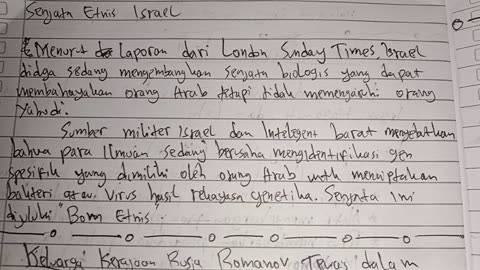 Senjata Etnis Israel
Menurut Laporan dari London Sunday Times Israel
didga sedang mengembangkan senjata biologis yang dapat
membahayakan orang Arab tetapi tidak memengaruhi orang
Yahudi.
Sumber militer Israel dan Intelegent barat menyebutkan
bahwa para Ilmuan sedang berusaha mengidentifikasi gen
spesifik yang dimiliki oleh orang Arab untuk menciptakan
bakteri atau virus hasil rekayasa genetika. Senjata ini
dijuluki "Bom Etnis".
Keluarga Kerajaan Rusia Romanov Tewas dalam